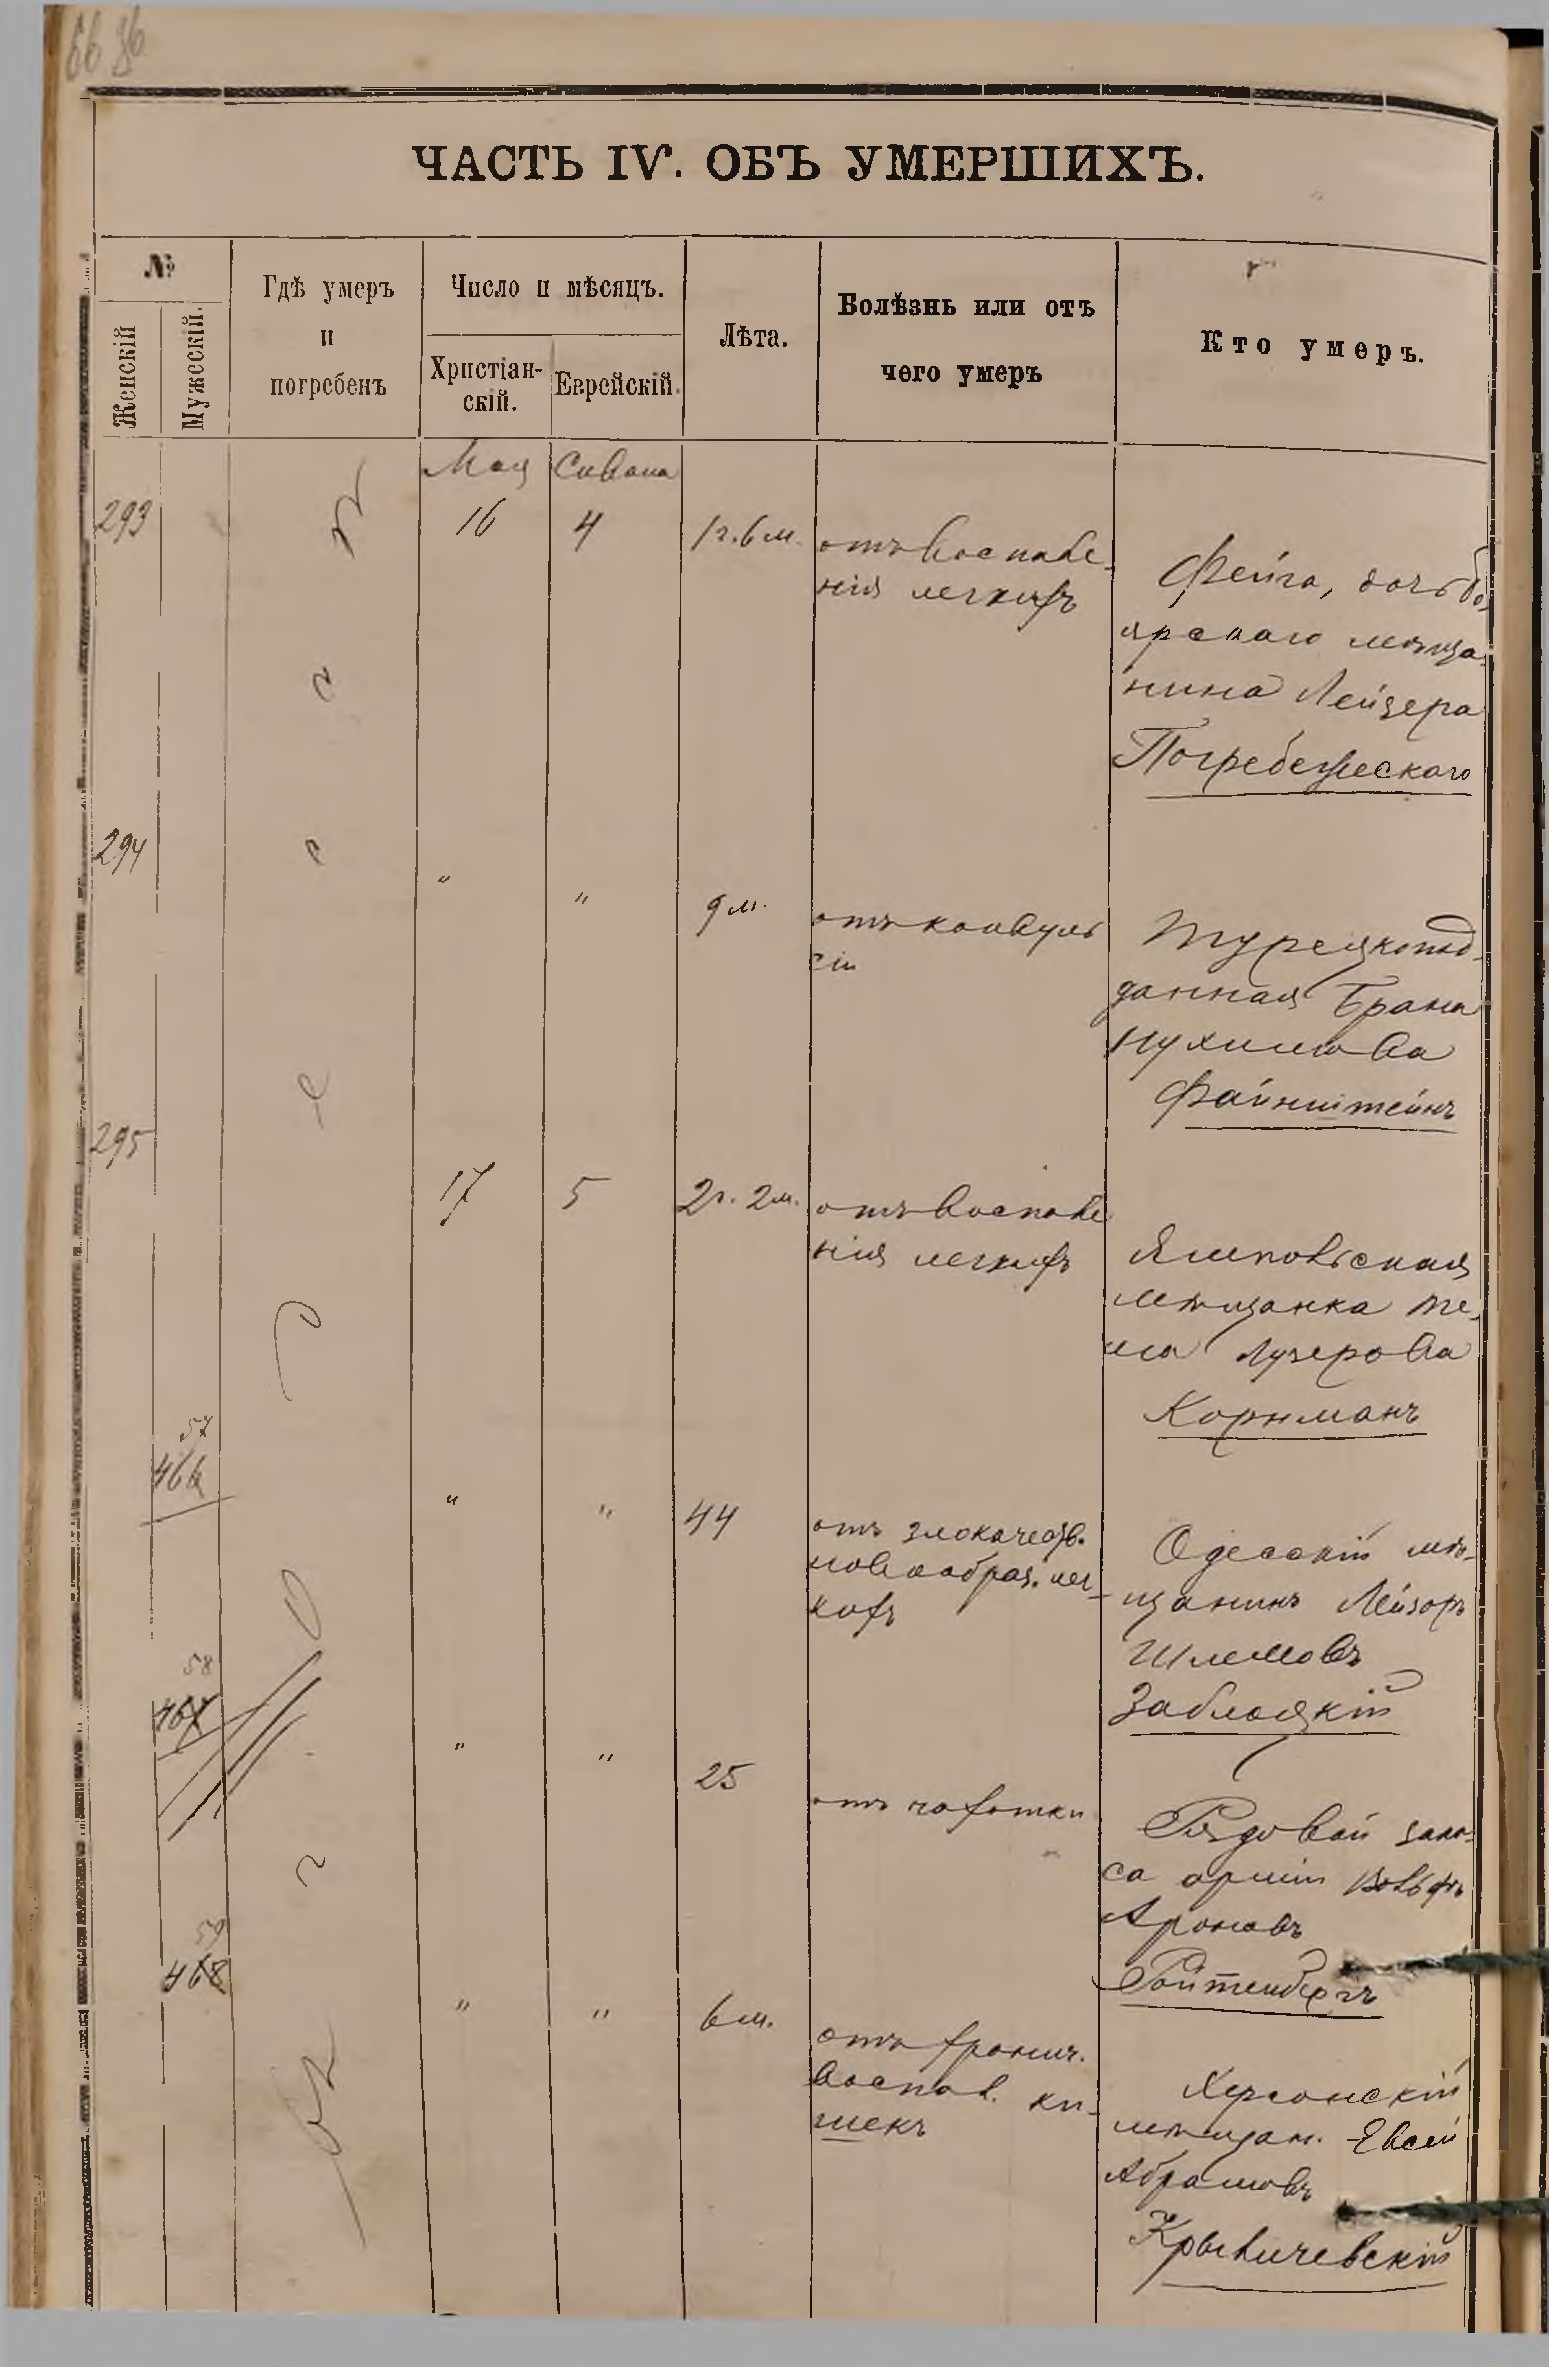 66 86
ЧАСТЬ IV. ОБЪ УМЕРШИХЪ.
№
Женскій
Мужескій.
Гдѣ умеръ
и
погребенъ
Число и мѣсяцъ.
Христіан-
скій.
Еврейскій.
Лѣта.
Болѣзнь или отъ
чего умеръ
Кто умеръ.
Мая Сивана
293 16 4 1 г. 6 м.
отъ воспале-
нія легкихъ
Фейга, дочь бо
ярскаго мѣща-
нина Лейзера
Погребежескаго
294 " " 9 м.
отъ конвуль
сій
Турецкопод-
данная Брана
Нухимова
Файнштейнъ
295 17 5 2 г. 2 м.
отъ воспале
нія легкихъ
Ямпольская
мѣщанка
Лузерова
Корнманъ
57
466 " " 44
отъ злокачеств.
новообраз. лег-
кихъ
Одесскій мѣ-
щанинъ Лейзоръ
Шлемовъ
Заблоцкій
58
467 " " 25
отъ чахотки
Рядовой запа-
са арміи Вольфъ
Ароновъ
Ройтенбергъ
59
468 " " 6 м.
отъ хронич.
воспал. ки-
шекъ
Херсонскій
мѣщан. Евсей
Абрамовъ
Крывичевскій